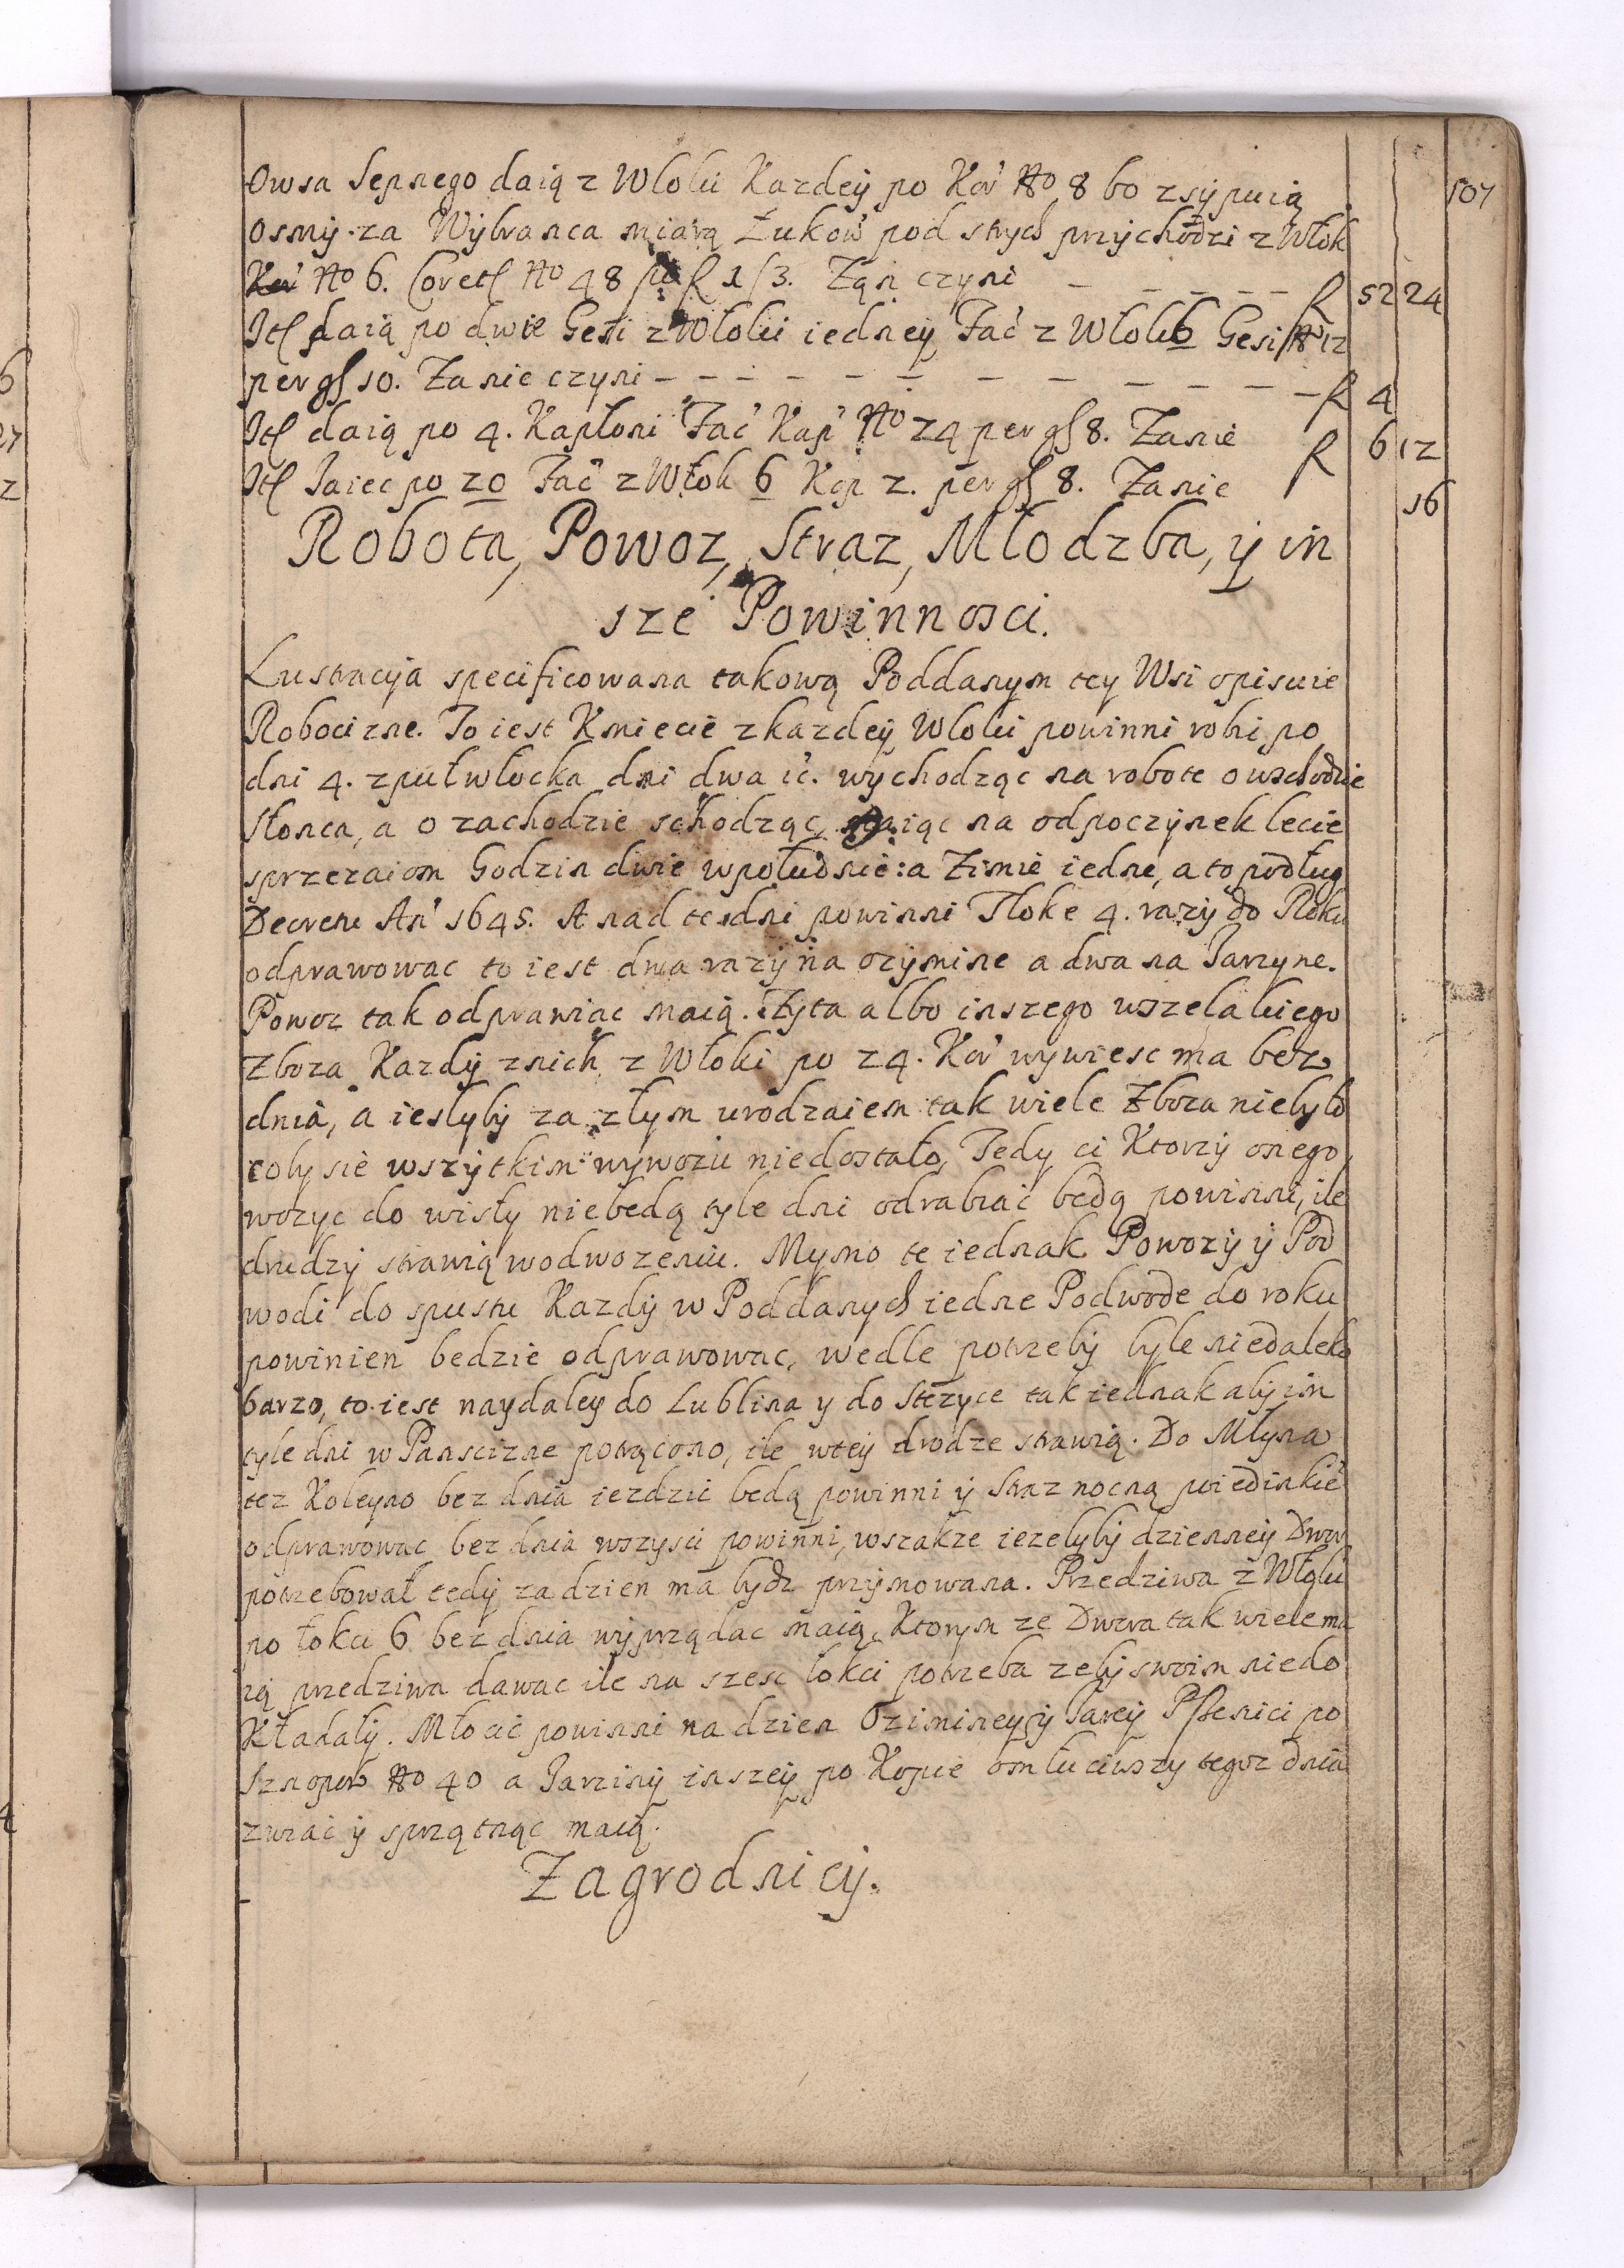 107
Owsa Sepnego daią z Wloki Kazdeÿ po Kor No 8 bo zsÿpuią
osmÿ za Wÿbranca miarą Łukow pod strych przÿchodzi z Włok
No 6. Coret No 48 f 1/3. Zan czyni - - - - - f 52 24
It daią po dwie Gesi z Wloki iedneÿ Fac z Wlok 6 Gesi No 12
per gs 10. Za nie czyni - - - - - - - - - - - f 4
It daią po 4. Kapłoni Fac Kap No 24 per gs 8. Zanie f 6 12
It Jaiec po 20 Fac z Włok 6 Kop 2. per gs 8. Zanie 16
Robota, Powoz, Straz, Młodzba, ÿ in
sze Powinnosci.
Lustracÿa specificowana takową Poddanym tey Wsi opisuie
Robocizne. To iest Kmiecie z kazdeÿ Wloki powinni robi po
dni 4. z puł włocka dni dwa ić. wÿchodząc na robote o wschodzie
Słonca, a o zachodzie schodząc, maiąc na odpoczÿnek lecie
sprzezaiom Godzin dwie w południe: a Zimie iedne, a to podług
Decretu An 1645. A nad te dni powinni Tloke 4. razÿ do Roku
odprawowac to iest dwa razÿ na ozymine a dwa na Jarzyne.
Powoz tak odprawiac maią. Zÿta albo inszego wszelakiego
Zboza Kazdÿ z nich z Wloki po 24. Kor wywiesc ma bez
dnia, a iesłybÿ za złym urodzaiem tak wiele Zboza niebyło
coby sie wszÿtkim wywozu niedostało, Tedy ci Ktorzÿ onego
wozyc do wisły niebędą tyle dni odrabiac będą powinni, ile
drudzÿ strawią w odwozeniu. Mymo te iednak Powozÿ ÿ Pod
wodi do spustu Kazdÿ w Poddanych iedne Podwode do roku
powinien bedzie odprawowac, wedle potrzebÿ byle niedaleko
barzo, to iest naydaley do Lublina y do Steżyce tak iednak abÿ im
tyle dni w Panscizne potrącono, ile w teÿ drodze strawią. Do Młyna
tez Koleyno bez dnia iezdzic będą powinni ÿ Straz nocną poiedinkiē
odprawowac bez dnia wszysci powinni, wszakze iezelybÿ dzienneÿ Dwor
potrzebował tedÿ za dzien ma bydz przÿmowana. Przedziwa z Wloki
po łokci 6 bez dnia wÿprządac maią. Ktorym ze Dwora tak wiele ma
ią przedziwa dawac ile na szesc łokci potrzeba zebÿ swoim niedo
Kładałÿ. Młocic powinni na dzien Oziminey ÿ Jareÿ Pszenici po
Sznopow No 40 a Jarzinÿ inszeÿ po Kopie omłuciwszy tegoz dnia
zwiac ÿ sprzątnąc maią.
Zagrodnicÿ.